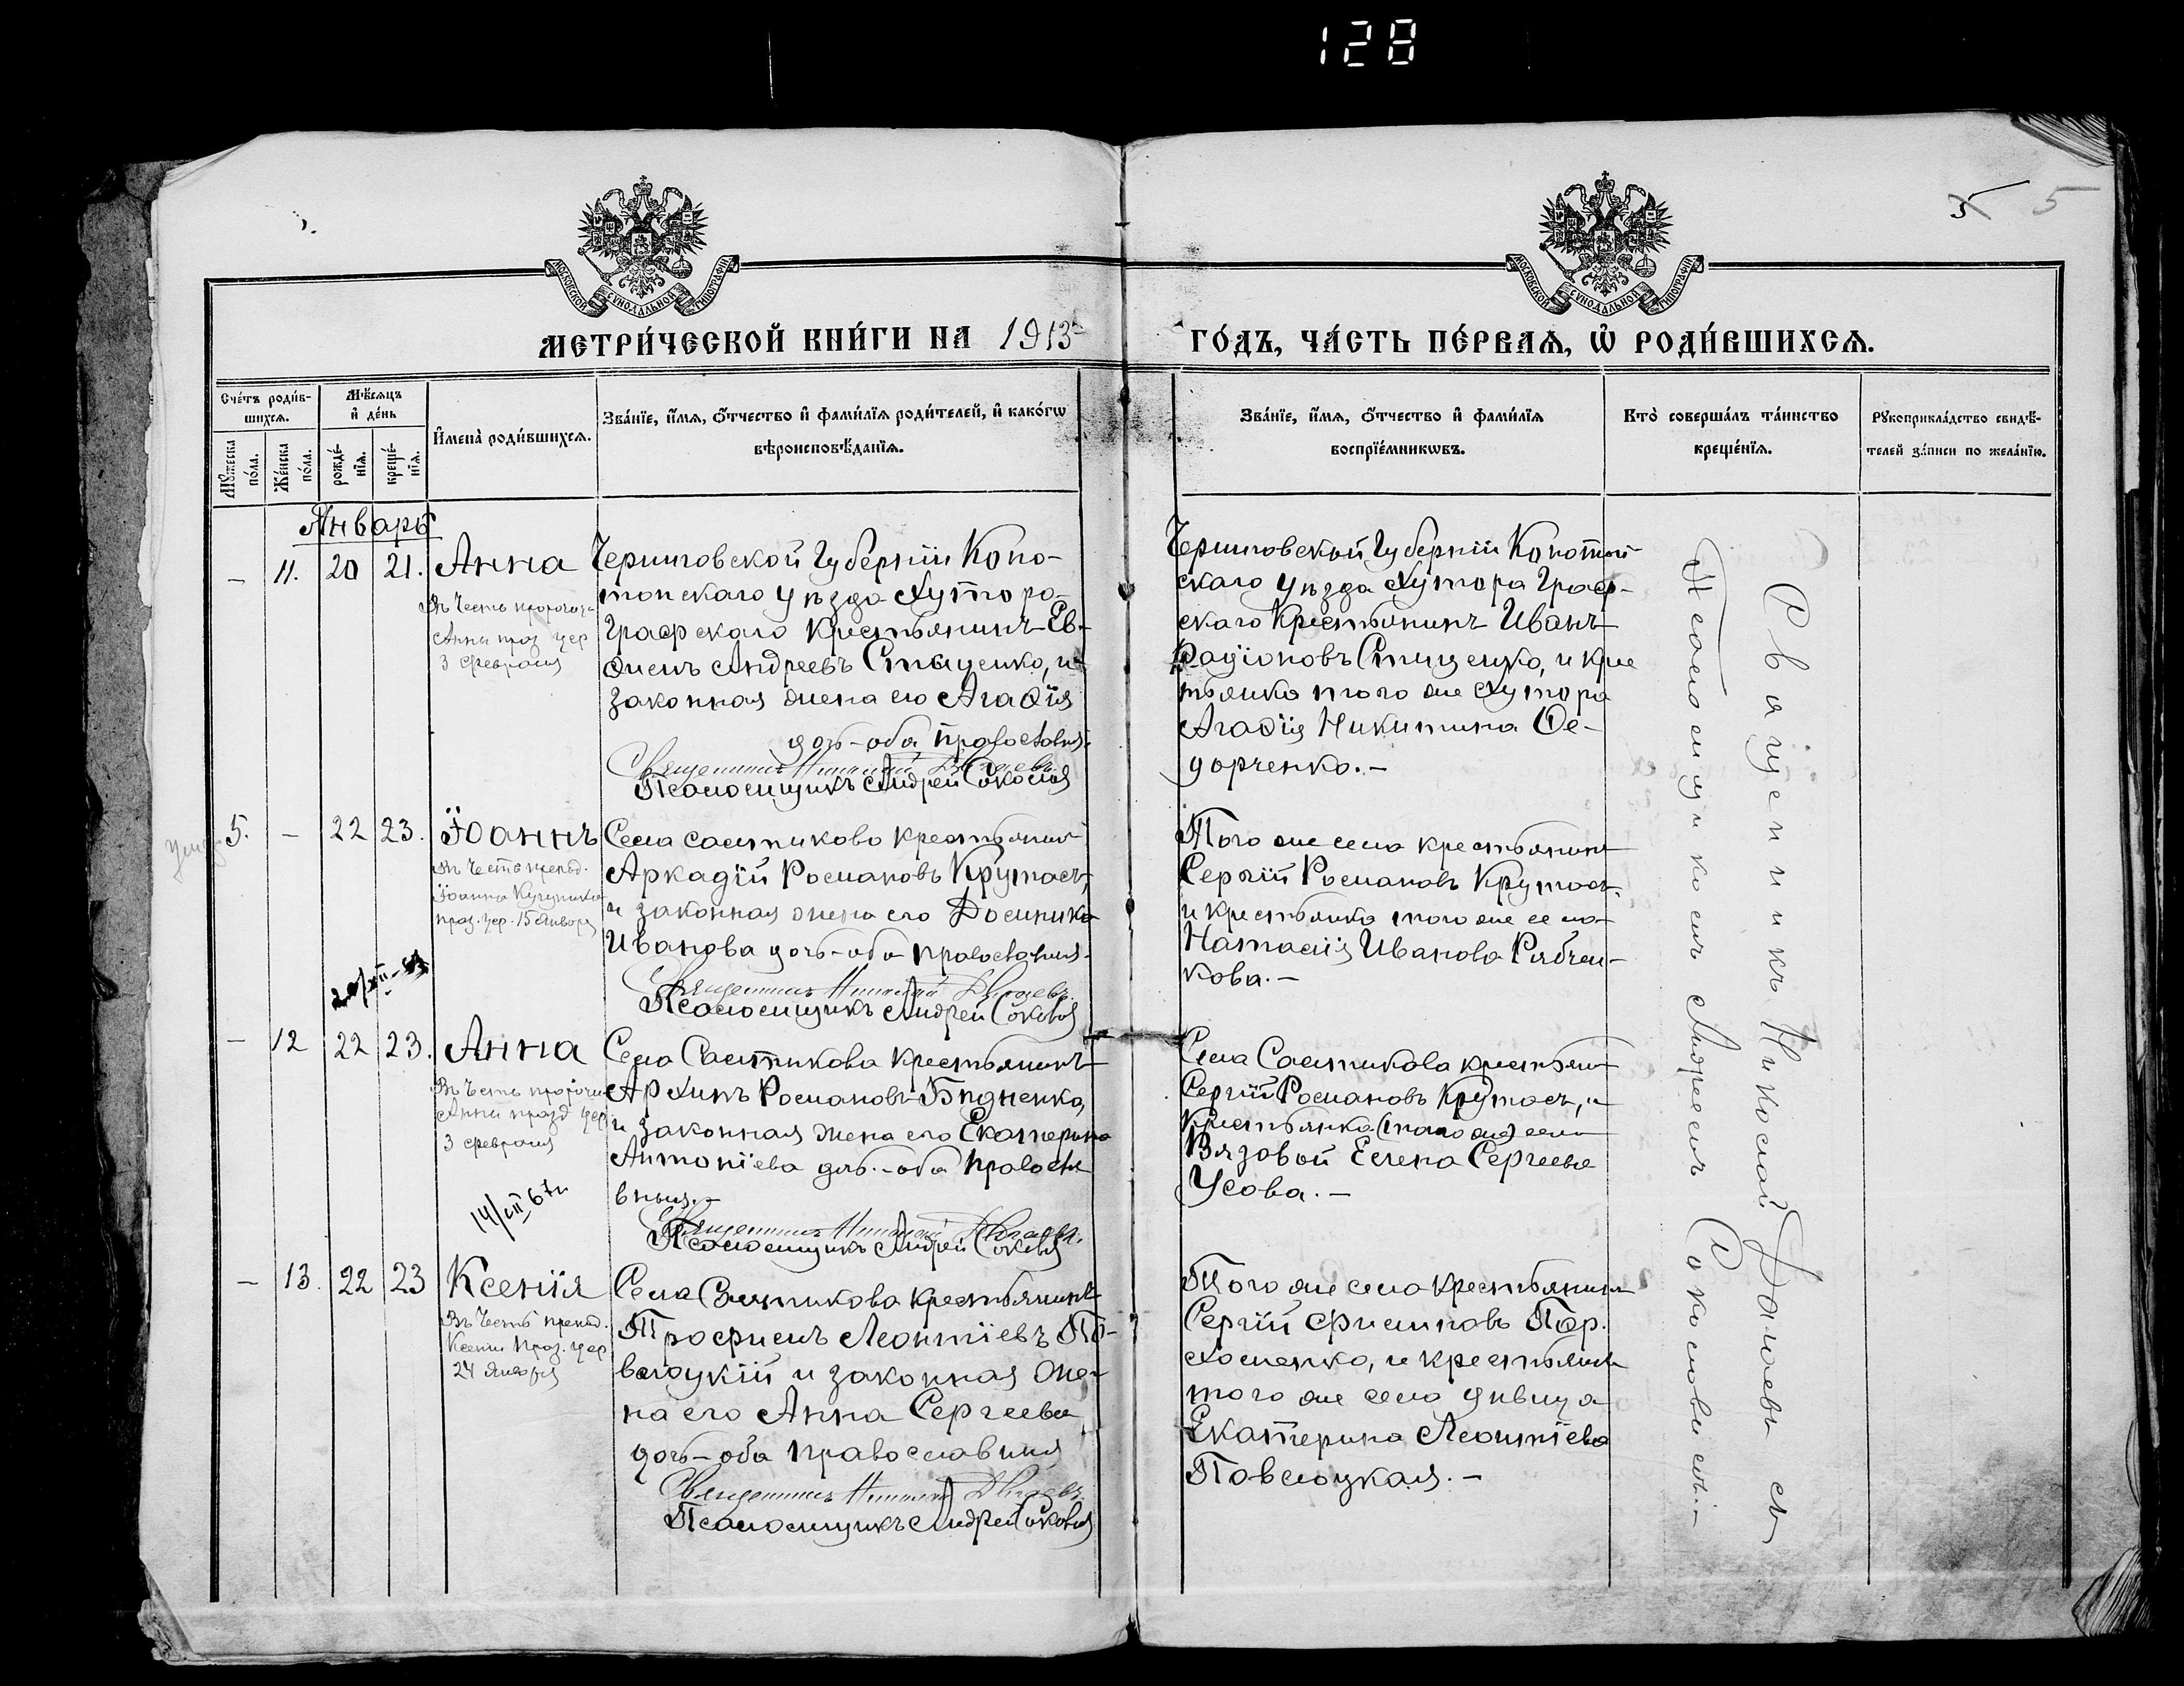 128
5 5
МОСКОВСКОЙ СѴНОДАЛЬНОЙ ТИПОГРАФІИ
МОСКОВСКОЙ СѴНОДАЛЬНОЙ ТИПОГРАФІИ
МЕТРИ́ЧЕСКОЙ КНИ́ГИ НА 1913
ГО́ДЪ, ЧА́СТЬ ПЕ́РВАѦ, Ѡ҆ РОДИ́ВШИХСѦ.
Сче́тъ роди́в-
шихсѧ.
Мꙋжеска
по́ла.
Же́нска
по́ла.
Мѣ́сѧцъ
и҆ де́нь
рожде́-
нїѧ.
креще́-
нїѧ.
И҆мена̀ роди́вшихсѧ.
Зва́нїе, и҆́мѧ, ѻ҆́тчество и҆ фами́лїѧ роди́телей, и҆ како́гѡ
вѣроисповѣ́данїѧ.
Зва́нїе, и҆́мѧ, ѻ҆́тчество и҆ фами́лїѧ
воспрїе́мникѡвъ.
Кто̀ соверша́лъ та́инство
креще́нїѧ.
Рꙋкоприкла́дство свидѣ́-
телей за́писи по жела́нїю.
Январь
— 11. 20 21. Анна
Въ честь пророчи-
Анны праз. цер
3 февраля
Черниговской Губерніи Коно-
топскаго уѣзда Хутора
Графскаго Крестьянинъ Ев-
ѳимъ Андреевъ Стаценко, и
законная жена его Агаѳія
дочь-оба Православн.
Священникъ Николай
Псаломщикъ Андрей Соколов
Черниговской Губерніи Конотоп-
скаго уѣзда Хутора Граф-
скаго Крестьянинъ Иванъ
Радіоновъ Стаценко, и кре
тьянка того же Хутора
Агаѳія Никитина Ѳе-
дорченко.—
5. — 22 23. Іоаннъ
Въ честь препод.
Іоанна Кущника
праз. цер. 15 января
Села Салтыкова крестьянин
Аркадій Романовъ Крутась,
и законная жена его Домника
Иванова дочь-оба православныя.
Священникъ Николай
Псаломщикъ Андрей Соколов
Того же села крестьянинъ
Сергій Романовъ Крутась,
и крестьянка того же села
Наталія Иванова Рябчен-
кова.—
— 12 22 23. Анна
Въ честь пророчи
Анны празд цер
3 февраля
Села Салтыкова Крестьянинъ
Архипъ Романовъ Бидненко,
и законная жена его Екатерина
Антоніева дочь.-оба Правосла
вныя.—
Священникъ Николай
Псаломщикъ Андрей Соколов
Села Салтыкова крестьян
Сергій Романовъ Крутась, и
Крестьянка (того же) села
Вязовой Елена Сергеева
Усова.—
— 13. 22 23 Ксенія
Въ честь препод.
Ксеніи праз. цер
24 января
Села Салтыкова Крестьянинъ
Трофимъ Леонтіевъ По-
влоцкій и законная же-
на его Анна Сергеева
дочь-оба православныя
Священникъ Николай
Псаломщикъ Андрей Соколов
Того же села Крестьянинъ
Сергій Филиповъ Пор.
хоменко, и крестьянка
того же села дѣвица
Екатерина Леонтіева
Повлоцкая.—
Священникъ Николай
съ
Псаломщикомъ Андреемъ Соколовымъ.—